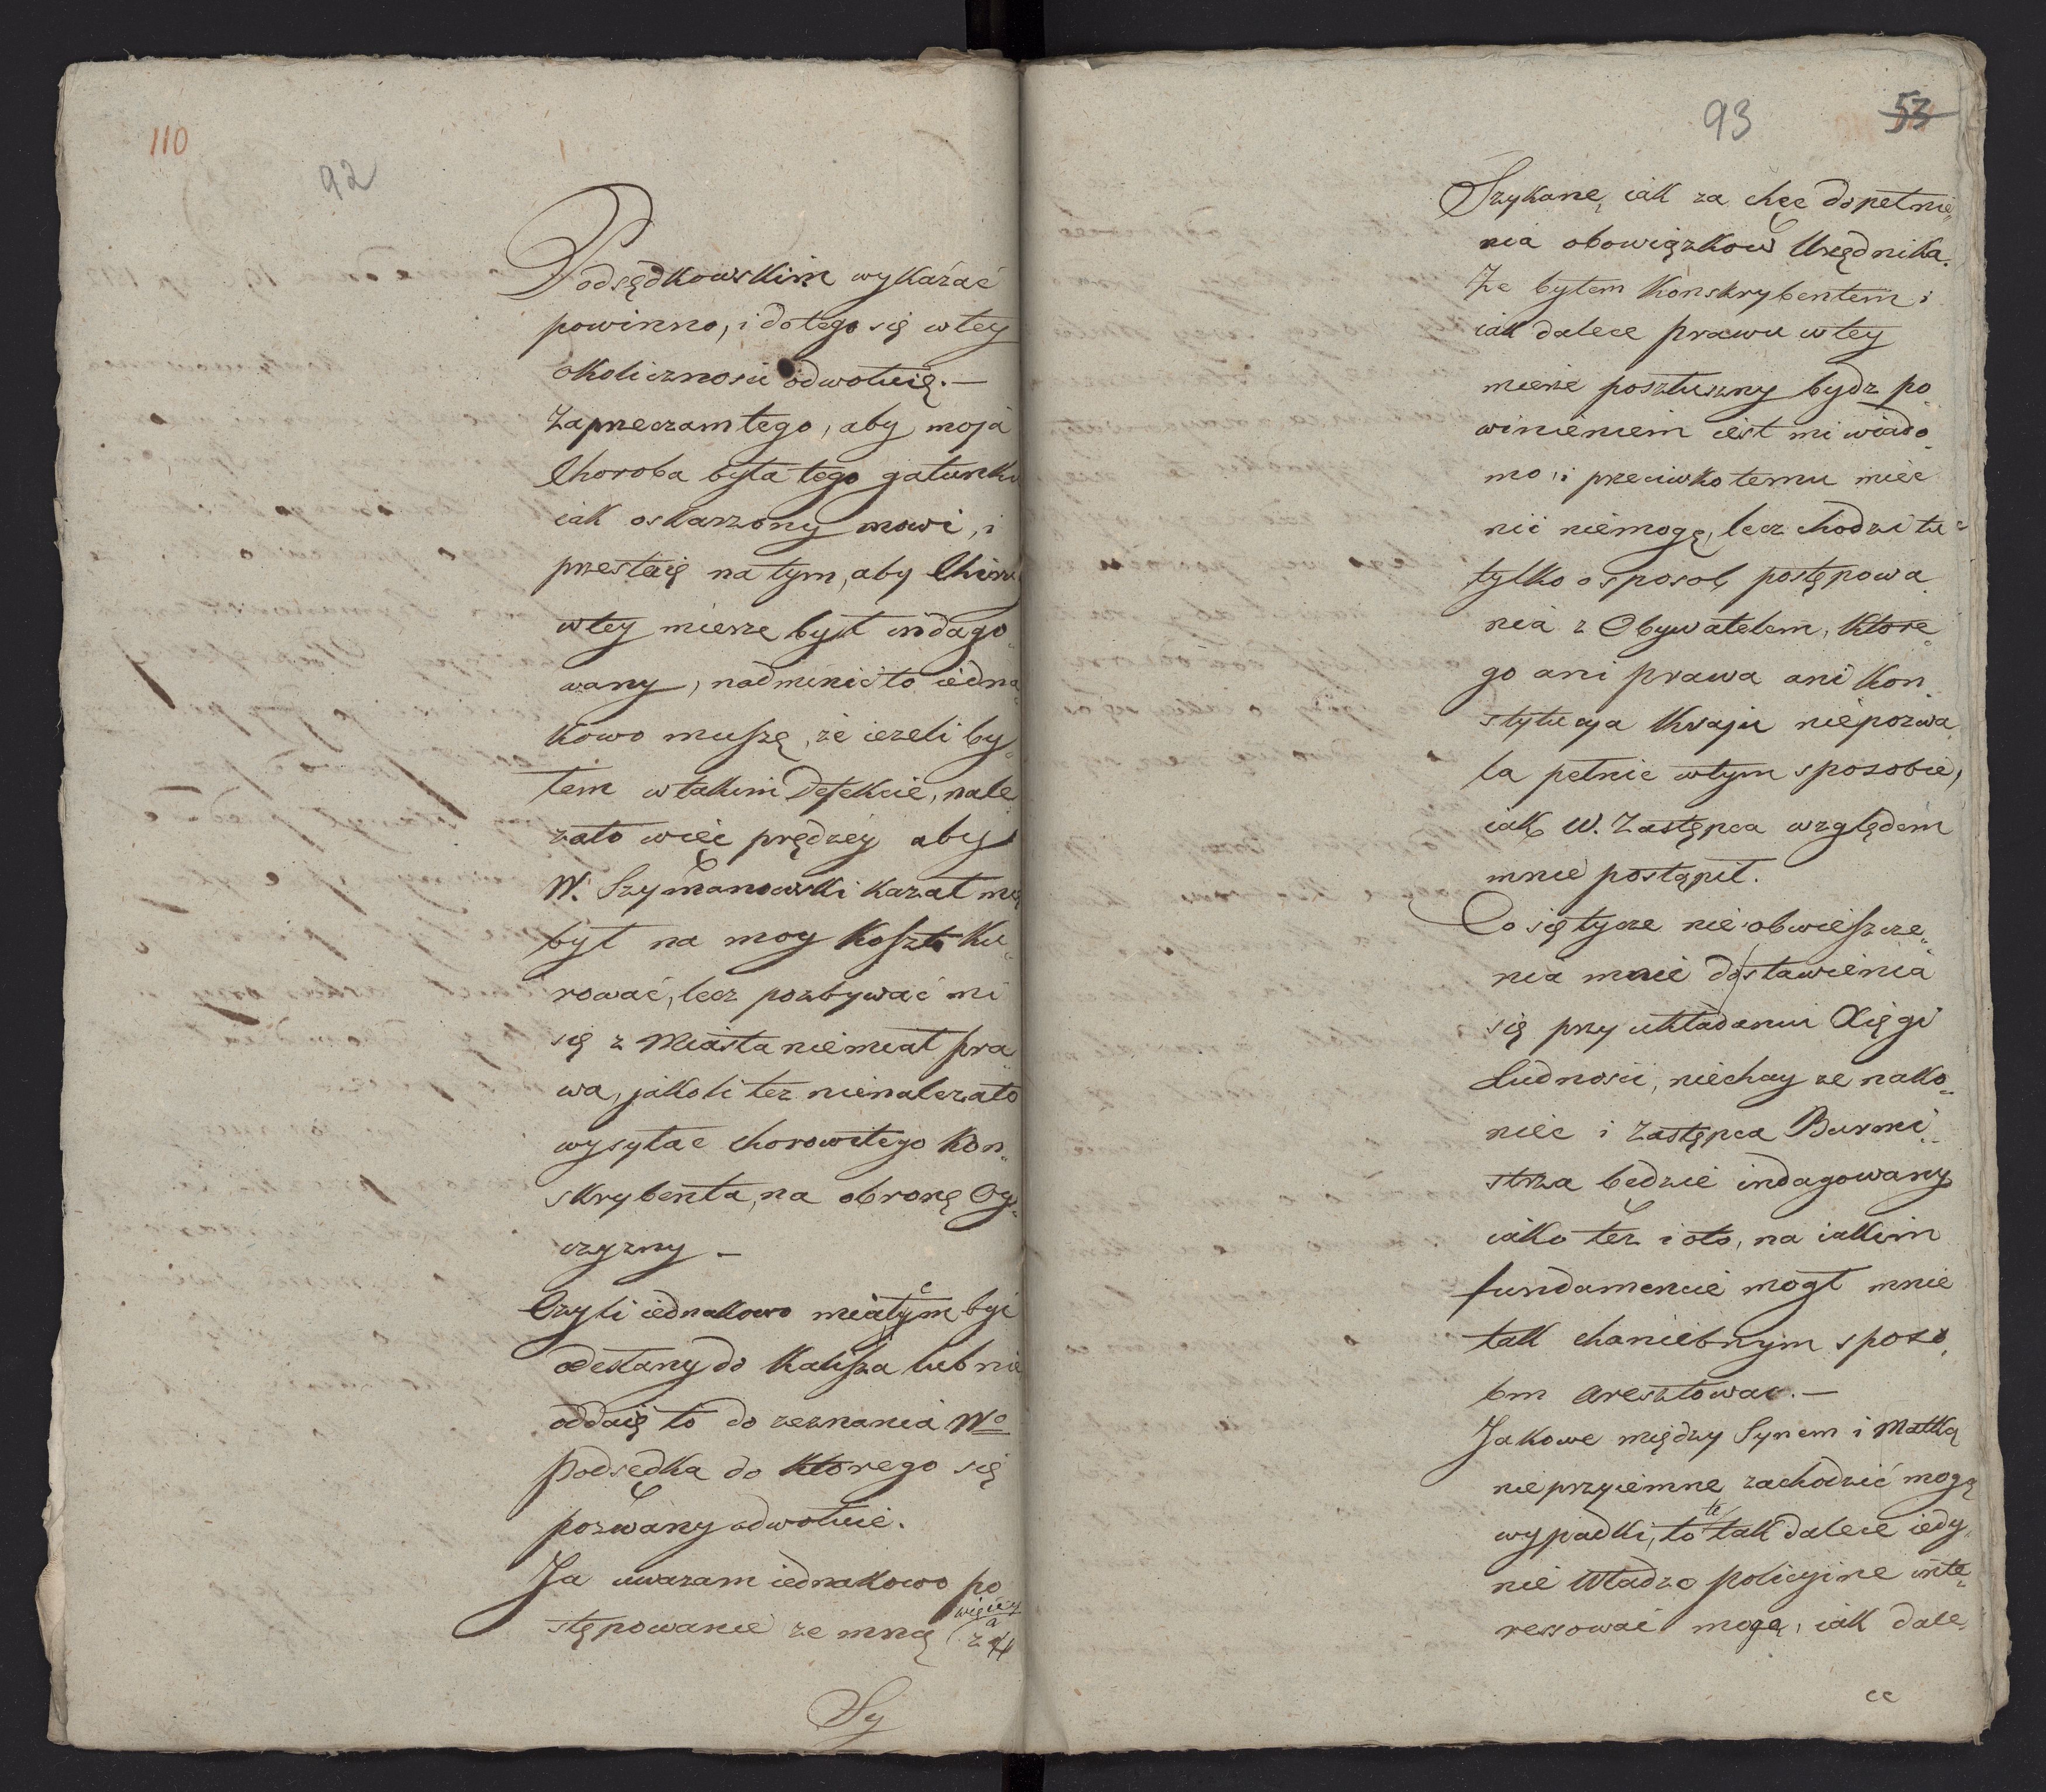 110
92
Podsędkowskim wykazać
powinno, i do tego się w tey
okolicznosci odwołuię. —
Zaprzeczam tego, aby moja
Choroba była tego gatunku
iak oskarzony mowi, i
przestaię na tym, aby Chirur
w tey mierze był indago„
wany, nadmienić to iedna„
kowo muszę, że ieżeli by„
łem w takim Defekcie, nale
żało więc prędzey aby
W. Szymanowski kazał mię
był na moy koszt ku„
rować, lecz pozbywać mi
się z Miasta niemiał pra
wa, jakoli tez nienalezało
wysyłac chorowitego Kon„
skrybenta, na obronę Oy„
czyzny —
Czyli iednakowo miałem być
odesłany do Kalisza lub nie
oddaię to do zeznania Wo
Podsędka do ktorego się
pozwany odwołuie.
Ja uwazam iednakowo po
stępowanie ze mną więcey za
Sy
93
53
Szykanę, iak za chęc dopełnie„
nia obowiązkow Urzędnika.
Ze byłem Konskrybentem i
iak dalece prawu w tey
mierze posłuszny bydz po
winieniem iest mi wiado„
mo, i przeciwko temu miec
nic niemogę, lecz chodzi tu
tylko o sposob postępowa
nia z Obywatelem, ktore„
go ani prawa ani Kon„
stytucya Kraju niepozwa
la pełnic w tym sposobie,
iak W. Zastępca względem
mnie postąpił.
Co się tycze nie obwieszcze„
nia mnie dostawienia
się przy układaniu Xięgi
Ludnosci, niechay ze nako„
niec i Zastępca Burmi„
strza będzie indagowany
iako tez i o to, na iakim
fundamencie mogł mnie
tak chaniebnym sposo„
bm aresztowac. —
Jakowe między Synem i Matką
nieprzyiemne zachodzić mogą
wypadki, to te tak dalece iedy„
nie Władze policyine inte„
ressować mogą, iak dale„
ce